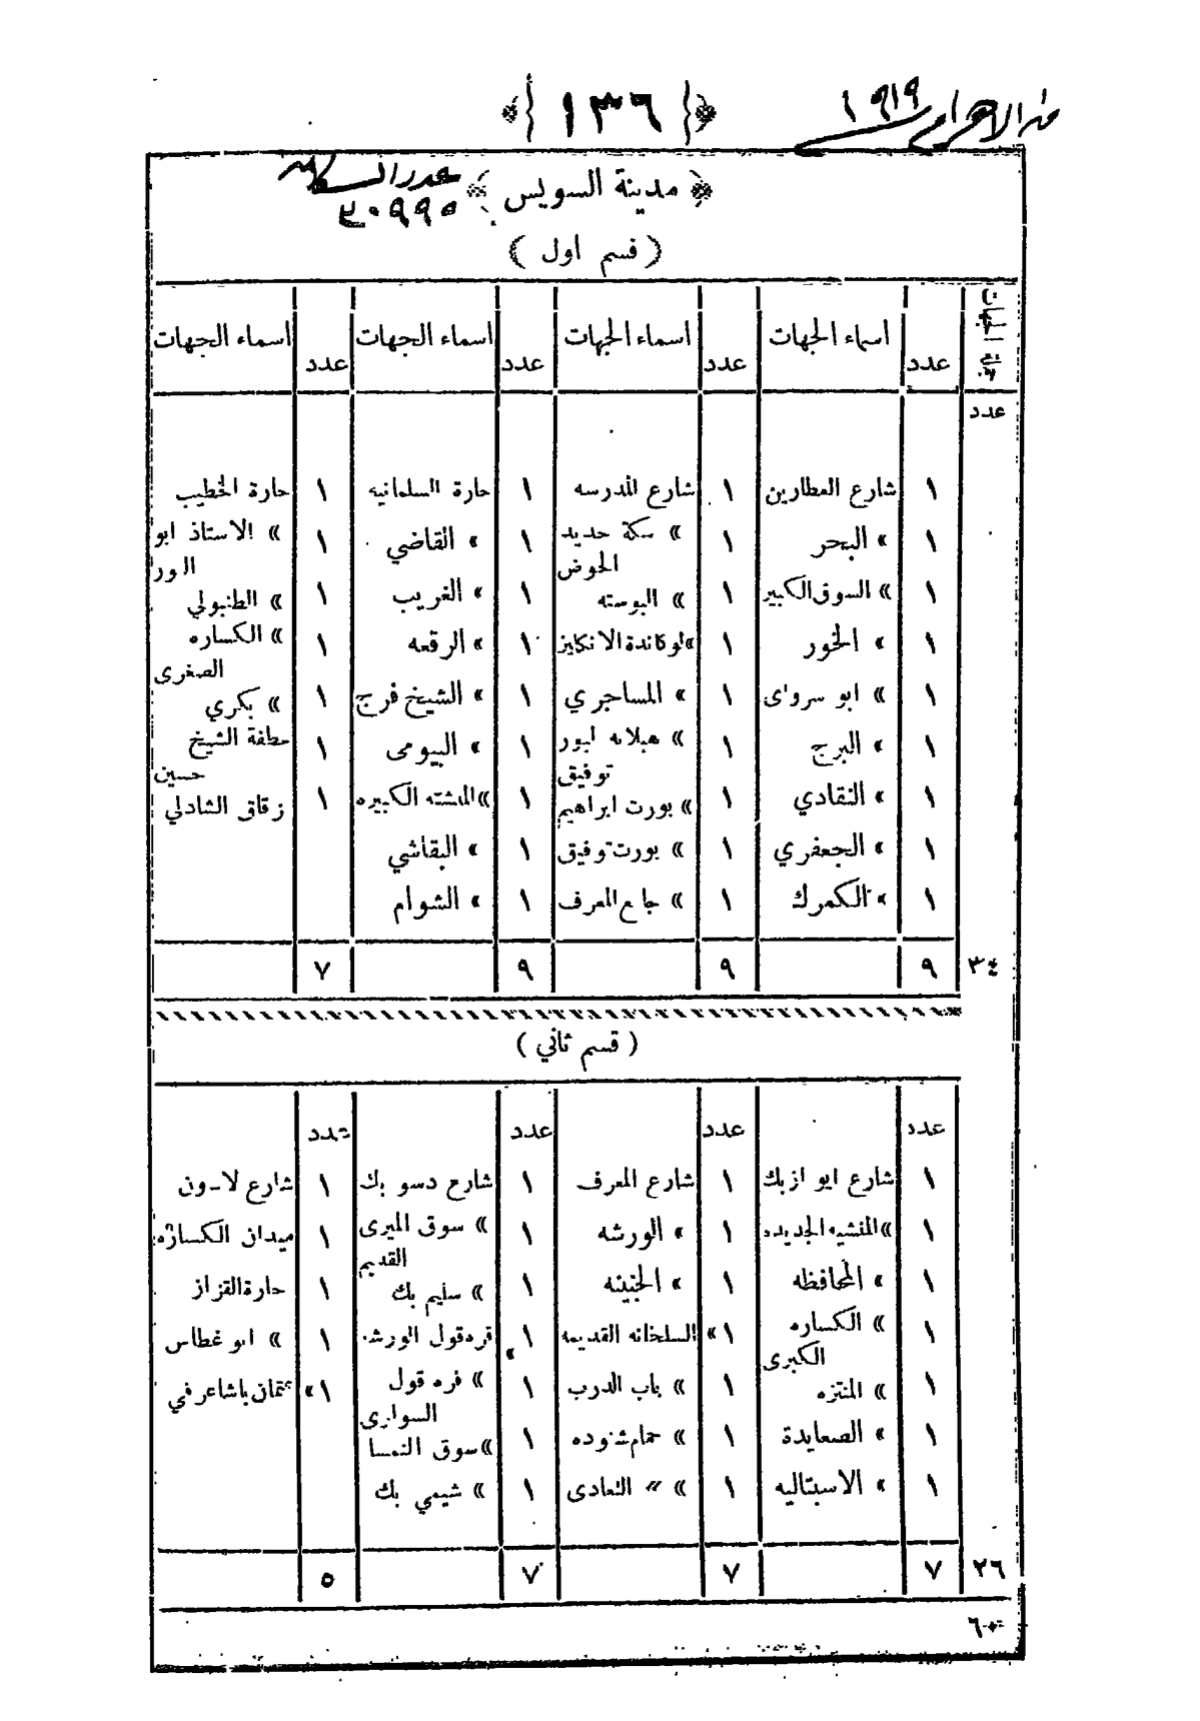 ١٣٦
من الاهرام ١٩١٩
مدينة السويس
عدد السكان
٣٠٩٩٥
( قسم اول )
جملة الجهات
عدد اسماء الجهات عدد اسماء الجهات عدد اسماء الجهات عدد اسماء الجهات
عدد
١ شارع العطارين ١ شارع المدرسه ١ حارة السلمانيه ١ حارة الخطيب
١ » البحر ١ » سكة حديد الحوض ١ » القاضي ١ » الاستاذ ابو
١ » السوق الكبير ١ » البوسته ١ » الغريب ١ » الطنبولي
١ » الخور ١ » لوكاندة الانكليز ١ » الرقعه ١ » الكساره الصغرى
١ » ابو ١ » المساجري ١ » الشيخ فرج ١ » بكري
١ » البرج ١ » توفيق ١ » البيومى ١ عطفة الشيخ حسين
١ » النقادي ١ » بورت ابراهيم ١ » الكبيره ١ زقاق الشاذلي
١ » الجعفري ١ » بورت توفيق ١ » البقاشي
١ » الكمرك ١ » جامع المعرف ١ » الشوام
٣٤ ٩ ٩ ٩ ٧
( قسم ثاني )
عدد عدد عدد عدد
١ شارع ابو ازبك ١ شارع المعرف ١ شارع دسو بك ١ شارع
١ » المنشيه الجديده ١ » الورشه ١ » سوق الميرى القديم ١ ميدان الكساره
١ » المحافظه ١ » الجنينه ١ » سليم بك ١ حارة القزاز
١ » الكساره الكبرى ١ » السلخانه القديمه ١ قره قول الورشه ١ » ابو غطاس
١ » المنتزه ١ » باب الدرب ١ » قره قول السوارى ١ » عثمان باشا عرفي
١ » الصعايدة ١ » حمام شنوده ١ » سوق النمسا
١ » الاسبتاليه ١ » » ١ » شيمي بك
٢٦ ٧ ٧ ٧ ٥
٦٠